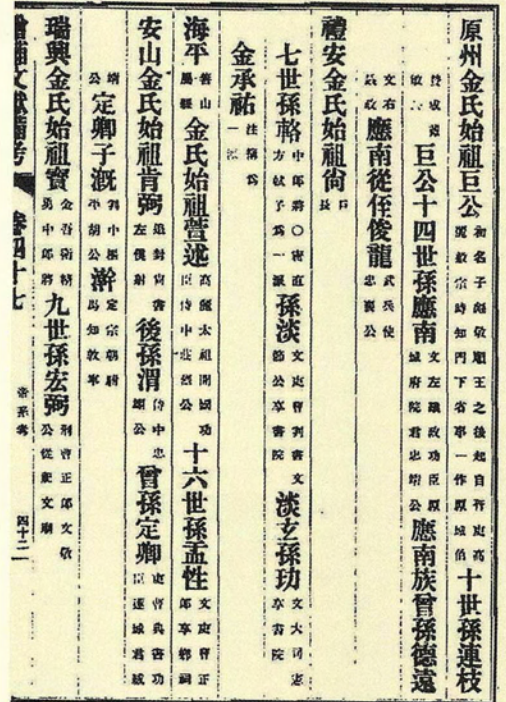 原州金氏始祖巨公 敬順王之後起自行吏高麗敬宗時知門下省事一作原城伯 十世孫連枝
巨公十四世孫應南 文左議政功臣原城府院君忠靖公 應南族曾孫德遠
文右議政 應南從侄俊龍 武兵使忠襄公
禮安金氏始祖尙 戶長
七世孫輅 中郎將○密直方軾子爲一派 孫淡 文吏曹判書文節公享書院 淡玄孫玏 文大司憲享書院
金承祐 注簿爲一派
海平 善山屬縣 金氏始祖萱述 高麗太祖開國功臣侍中莊烈公 十六世孫孟性 文吏曹正郎享鄕祠
安山金氏始祖肯弼 追封尙書左僕射 後孫渭 侍中忠公 曾孫定卿 吏曹典書功臣蓮城君威
靖公 定卿子漑 判中樞平胡公 澣 定宗朝駙馬知敦寧
瑞興金氏始祖寶 金吾衛精勇中郎將 九世孫宏弼 刑曹正郎文敬公從祀文廟
增補文獻備考 卷四十七 帝系考 四十二